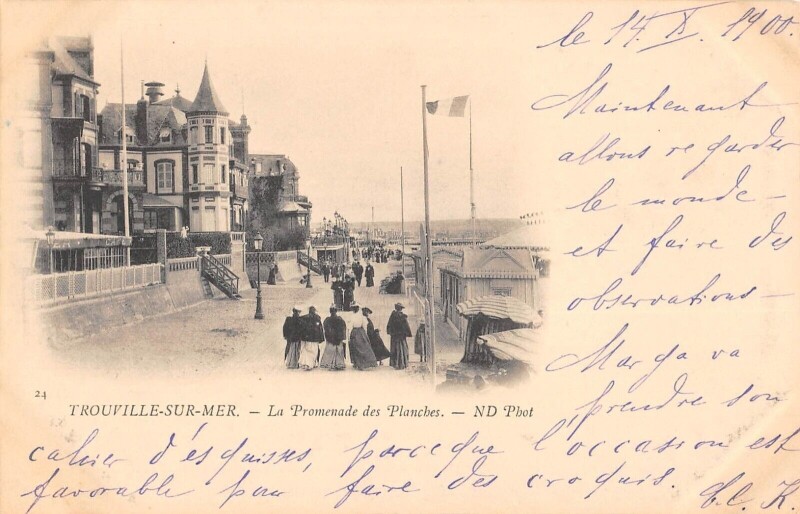 le 14. X. 1900.
Maintenant
allons regarder
le monde -
et faire des
observations -
Marga va
prendre son
24
TROUVILLE-SUR-MER. — La Promenade des Planches. — ND Phot
cahier d'esquisses, parceque l'occasion est
favorable pour faire des croquis.
K.